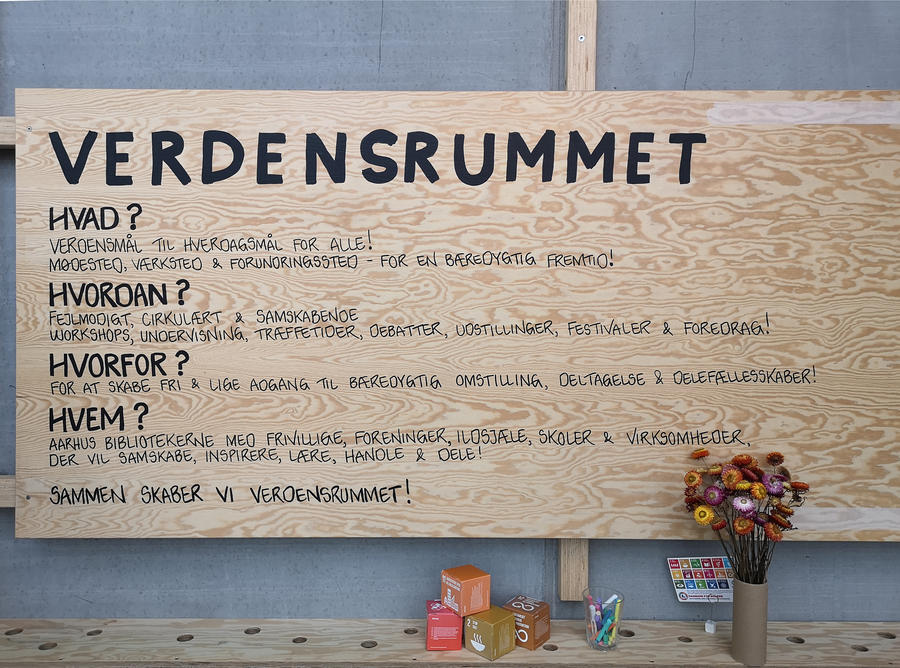 VERDENSRUMMET
HVAD?
VERDENSMÅL TIL HVERDAGSMÅL FOR ALLE!
MØDESTED, VÆRKSTED & FORUNDRINGSSTED - FOR EN BÆREDYGTIG FREMTID!
HVORDAN?
FEJLMODIGT, CIRKULÆRT & SAMSKABENDE
WORKSHOPS, UNDERVISNING, TRÆFFETIDER, DEBATTER, UDSTILLINGER, FESTIVALER & FOREDRAG!
HVORFOR?
FOR AT SKABE FRI & LIGE ADGANG TIL BÆREDYGTIG OMSTILLING, DELTAGELSE & DELEFÆLLESSKABER!
HVEM?
AARHUS BIBLIOTEKERNE MED FRIVILLIGE, FORENINGER, ILDSJÆLE, SKOLER & VIRKSOMHEDER,
DER VIL SAMSKABE, INSPIRERE, LÆRE, HANDLE & DELE!
SAMMEN SKABER VI VERDENSRUMMET!